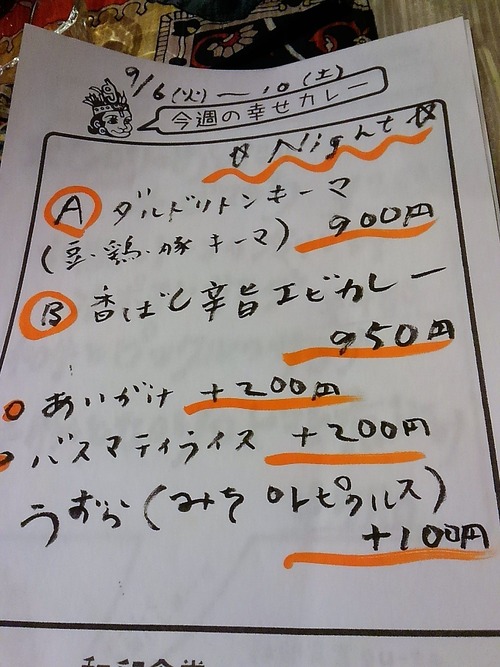 9/6(火)―10(土)
今週の幸せカレー
☆Night☆
Ⓐ ダルドリトンキーマ
(豆・鶏・豚キーマ) 900円
Ⓑ 香ばし辛旨エビカレー
950円
あいがけ +200円
バスマティライス +200円
うずら(みち
+100円